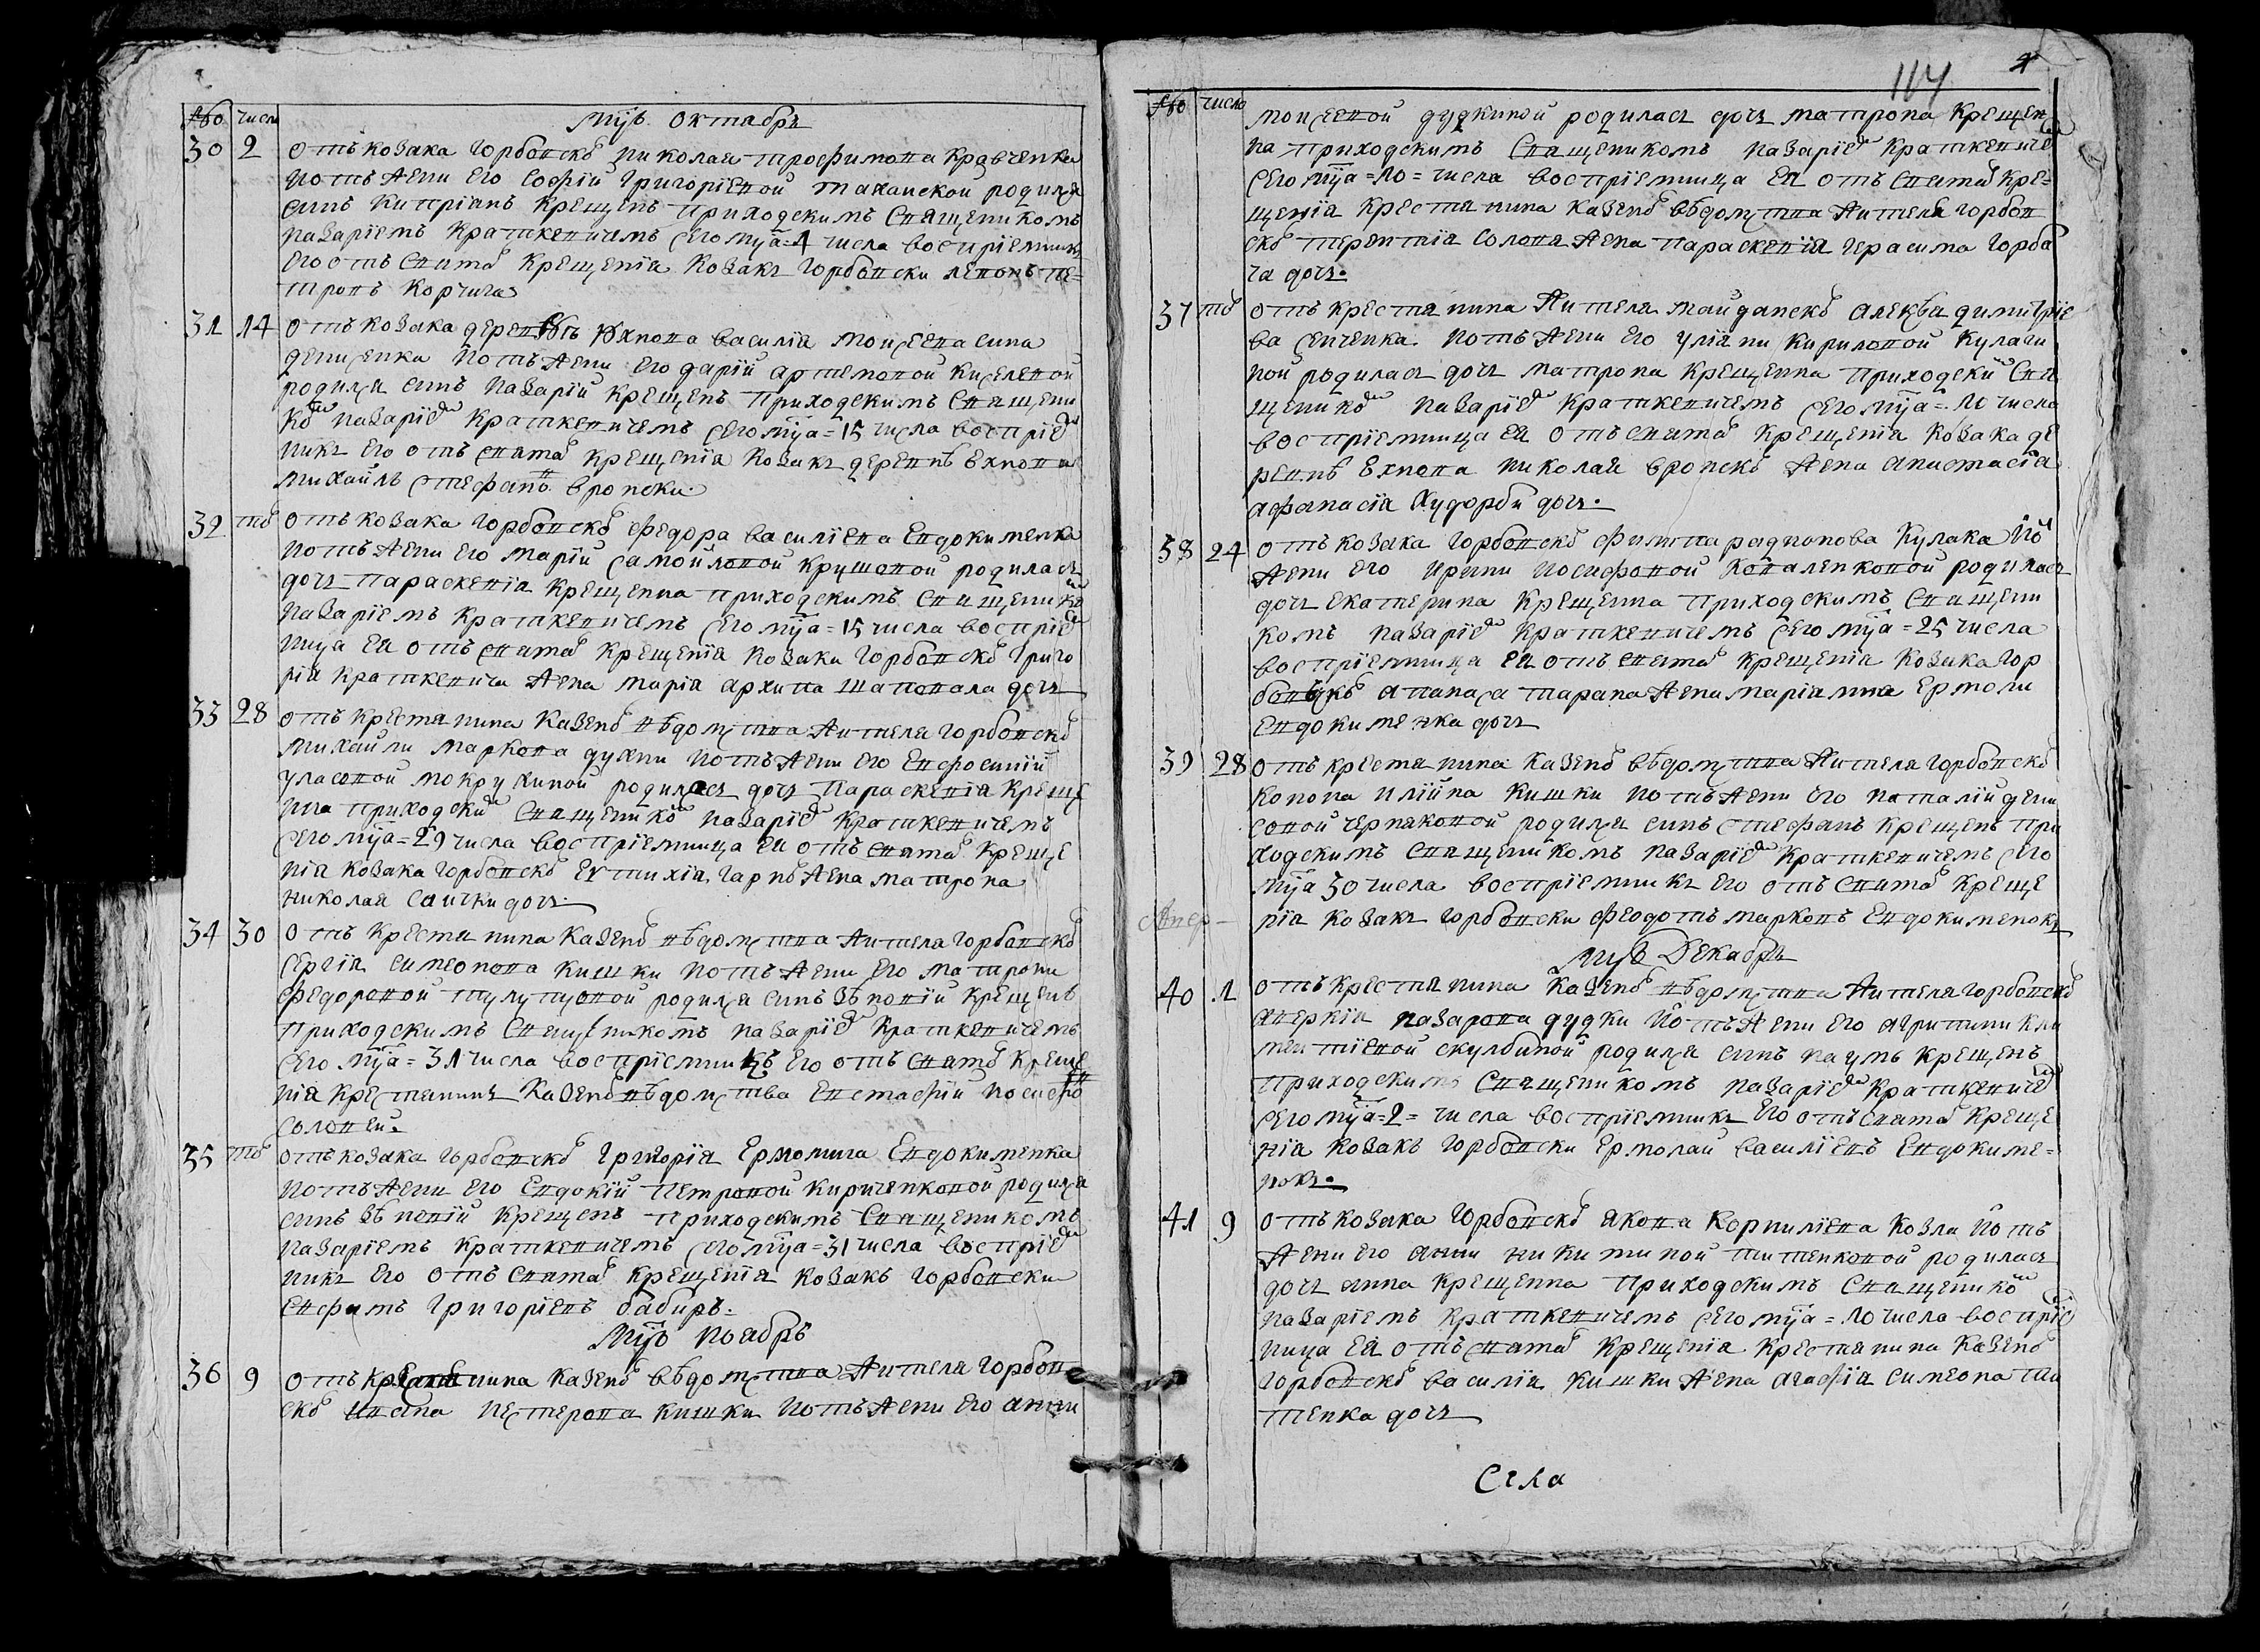 числа
мць октабрь
30 2 отъ козака горбовско николая трофимова кравченка
и отъ жени его софіи григоріевой таханской родился
синъ кипріанъ крещенъ приходскимъ священикомъ
назаріемъ краткевичемъ сего мца = 4 числа воспріемникъ
его отъ святаго крещенія козакъ горбовски левонъ пе=
тровъ корчига
31 14 отъ козака деревнѣ юхнова василія моисеева сина
денисенка и отъ жени его даріи артемовой киселевой
родился синъ назарій крещенъ приходскимъ священи
ко назаріе краткевичемъ сего мца = 15 числа воспріем
никъ его отъ святаго крещенія козакъ деревнѣ ехнова
михаилъ стефанов вронски
32 то отъ козака горбовско федора василіева евдокименка
и отъ жени его маріи самойловой крушовой родилася
дочь параскевія крещенна приходскимъ священико
назаріемъ краткевичемъ сего мца = 15 числа воспріем
ница ея отъ святаго крещенія козака горбовско григо
рія краткевича жена марія архипа шаповала дочь
33 28 отъ крестянина казено вѣдомства жителя горбовско
михаили маркова духни и отъ жени его евфросиніи
уласовой мокрухиной родилася дочь параскевія креще
нна приходски священико назаріе краткевичемъ
сего мца = 29 числа воспріемница ея отъ святаго креще
нія козака горбовско евтихія гарно жена матрона
николая саички дочь
34 30 отъ крестянина казено вѣдомства жителя горбовско
сергія симеонова кишки и отъ жени его матрони
федоровой тулупцовой родился синъ зѣновій крещенъ
приходскимъ священикомъ назаріе краткевичемъ
сего мца = 31 числа воспріемникъ его отъ свято креще
нія крестянинъ казено вѣдомства евстафій иосифо
соловей.
35 то отъ козака горбовско григорія ермолича евдокименка
и отъ жени его евдокіи петровой кириченковой родился
синъ зѣновій крещенъ приходскимъ священикомъ
назаріемъ краткевичемъ сего мца = 31 числа воспріем
никъ его отъ святаго крещенія козакъ горбовски
евфимъ григоріевъ бабиръ.
мць ноябрь
36 9 отъ крестянина казено вѣдомства жителя горбов
ско ивана нестерова кишки и отъ жени его анни
114
числа
моисеевой дудкиной родилася дочь матрона крещен
на приходскимъ священикомъ назаріе краткевиче
сего мца = 10 = числа воспріемница ея отъ святаго кре=
щенія крестянина казено вѣдомства жителя горбов
ско терентія солопя жена параскевія герасима горба
ча дочь.
37 то отъ крестянина жителя майданско алексѣя димитріе
ва сенченка и отъ жени его уліяни кириловой кулаги
ной родилася дочь матрона крещенна приходски свя
щенико назаріе краткевичемъ сего мца = 10 числа
воспріемница ея отъ святаго крещенія козака де
ревнѣ ехнова николая вронско жена анистасія
афанасія худорби дочь.
38 24 отъ козака горбовско филипа радионова кулака и о
жени его ирини иосифовой коваленковой родилася
дочь екатерина крещенна приходскимъ священи
комъ назаріе краткевичемъ сего мца = 25 числа
воспріемница ея отъ святаго крещенія козака гор
бовско апанаса тарана жена маріанна ермоли
евдокименка дочь
39 28 отъ крестянина казено вѣдомства жителя горбовско
конона илійна кишки и отъ жени его наталіи дени
совой черняковой родился синъ стефанъ крещенъ при
ходскимъ священикомъ назаріе краткевичемъ сего
мца 30 числа воспріемникъ его отъ святаго креще
нія козакъ горбовски феодотъ марковъ евдокименокъ
мць декабрь
40 1 отъ крестянина казено вѣдомства жителя горбовско
аверкія назарова дудки и отъ жени его агрипини кли
ментіевой скулбиной родился синъ наумъ крещенъ
приходскимъ священикомъ назаріе краткевиче
сего мца = 2 = числа воспріемникъ его отъ святаго креще
нія козакъ горбовски ермолай василіевъ евдокиме=
нокъ.
41 9 отъ козака горбовско якова корниліева козла и отъ
жени его анни никитиной титенковой родилася
дочь анна крещенна приходскимъ священико
назаріемъ краткевичемъ сего мца = 10 числа воспріем
ница ея отъ святаго крещенія крестянина казено
горбовско василія кишки жена агафія симеона ти
тенка дочь
Села